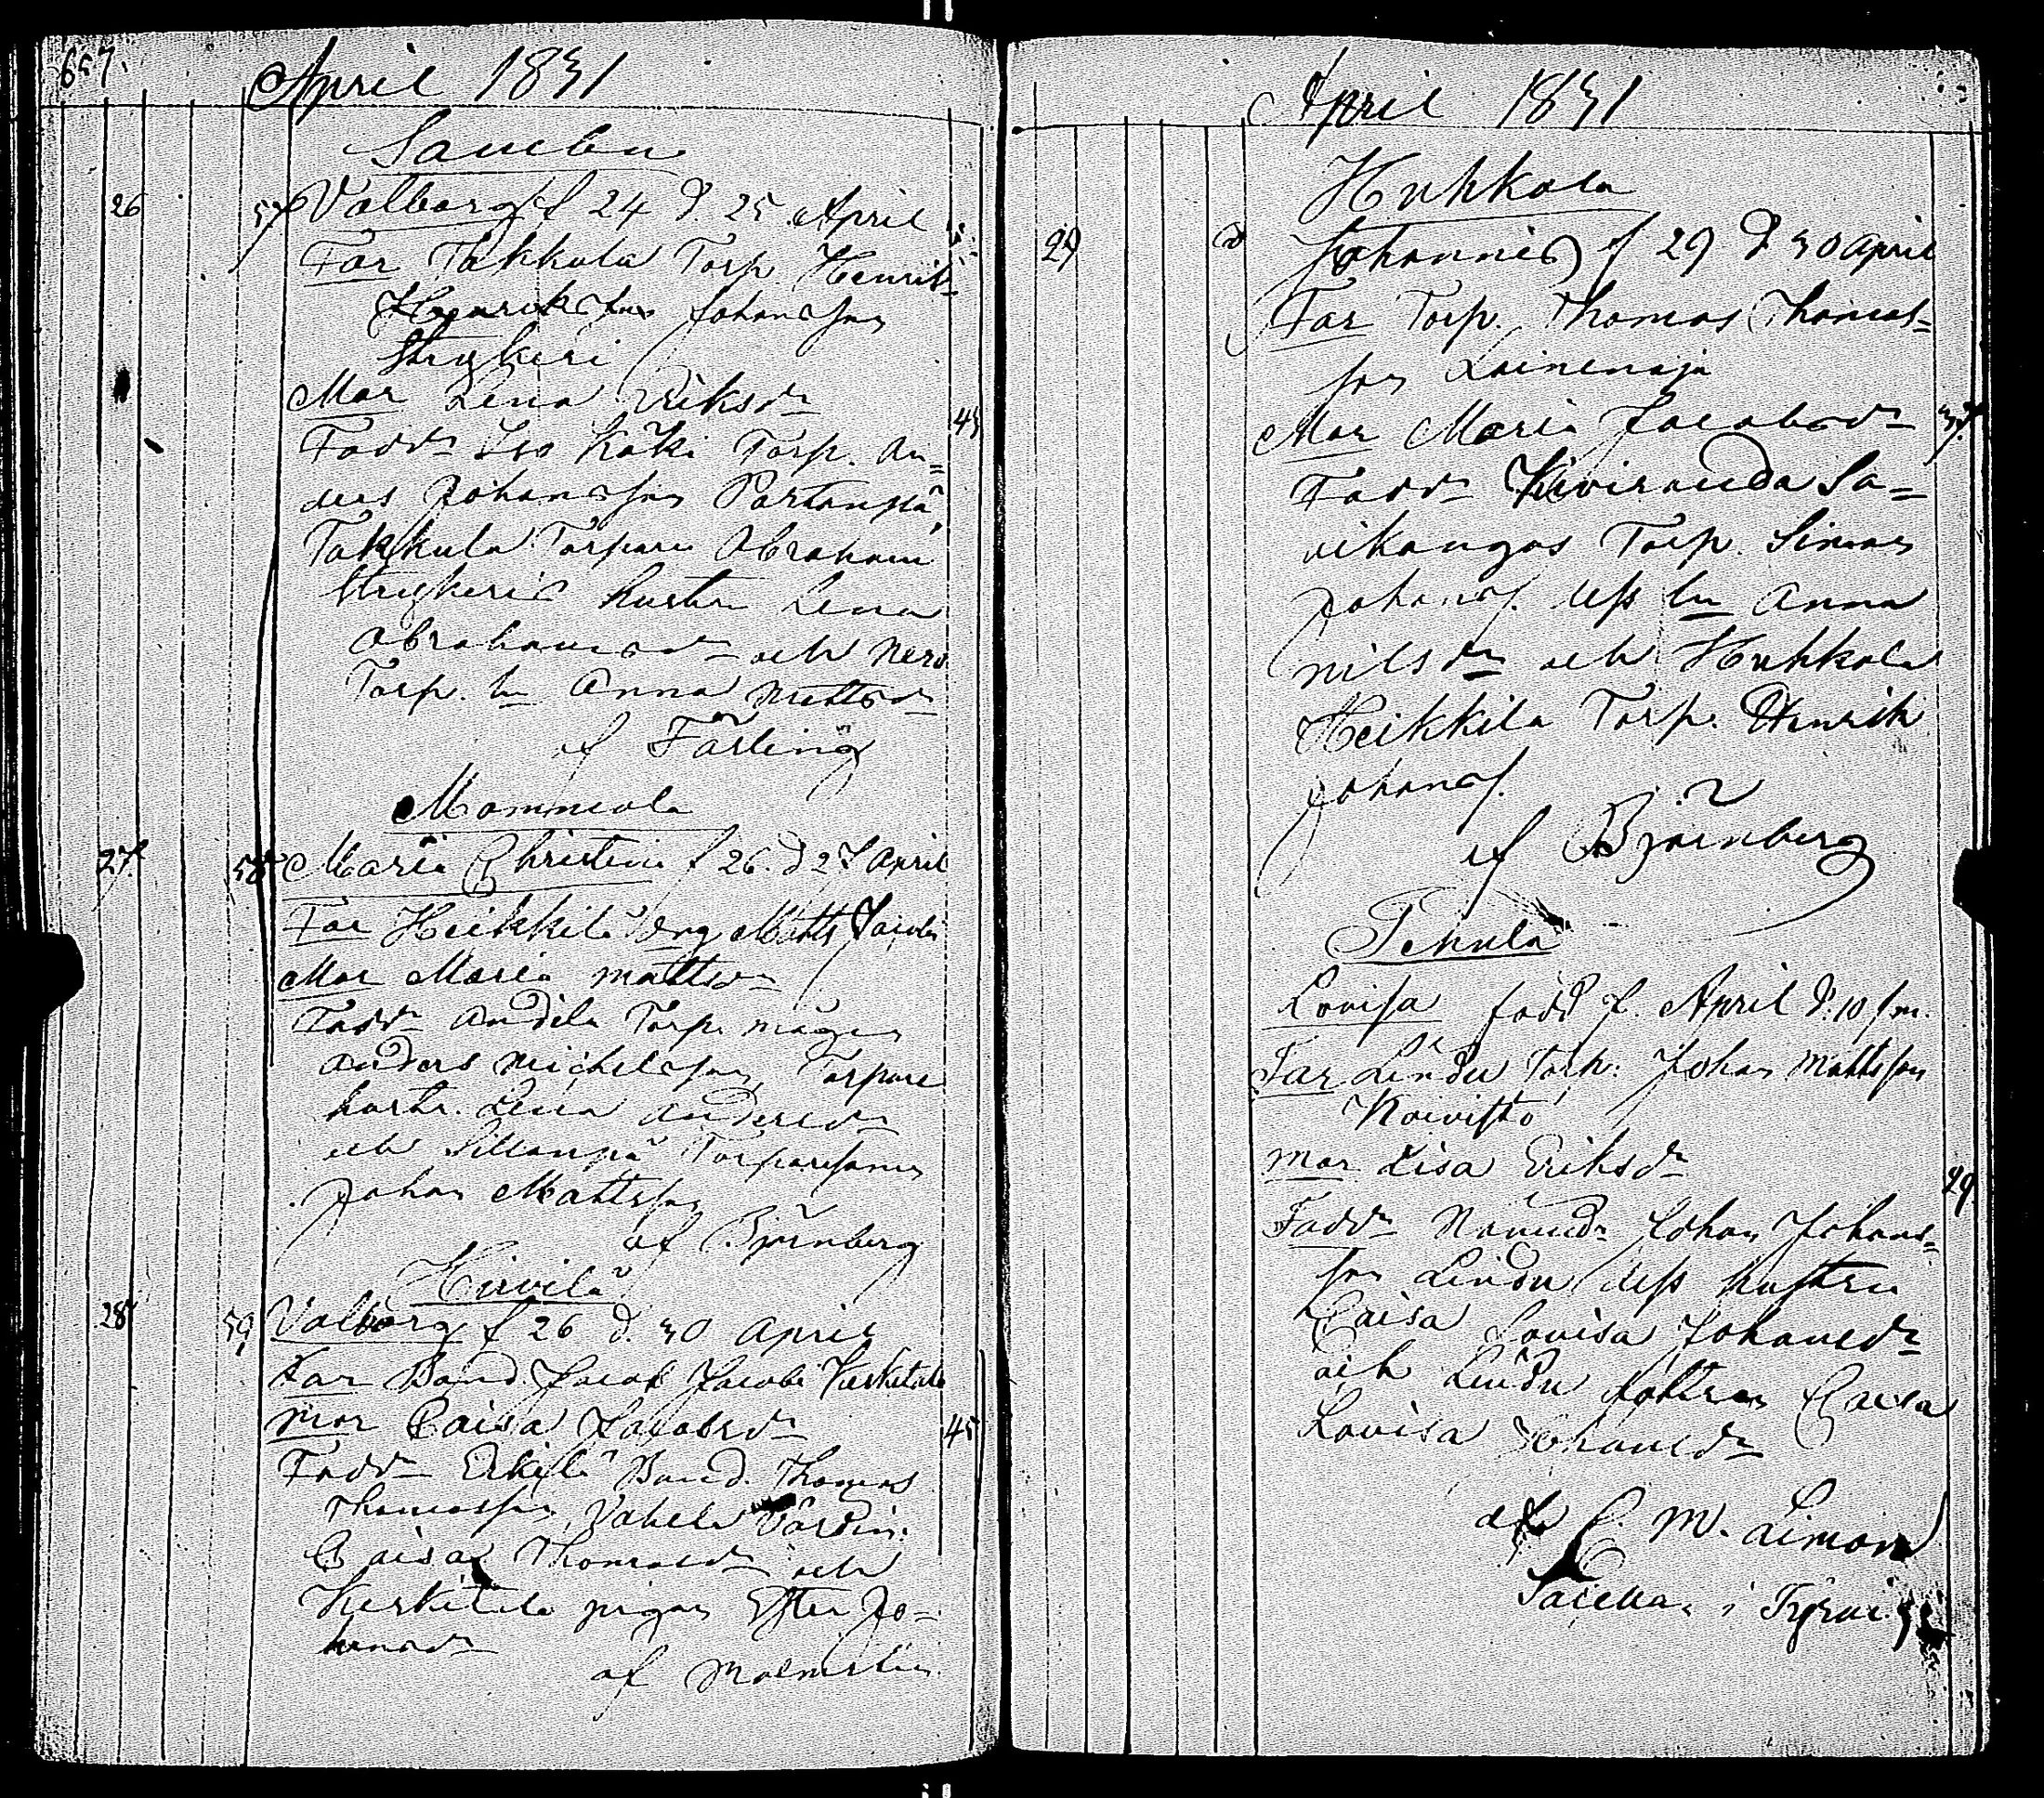 657.
April 1831
Sambu
26 57 Valborg f 24 d 25 April
Far Takkula Torp. Henrik
Johansson
Mor Lena Eriksdr 45
Faddr Iso Köki Torp. An=
ders Johansson Partanpä,
Takkula Torpare Abraham
hustru Lena
Abrahamsdr och
Torp. hu Anna Mattsdr
af Färling
Mommola
27. 58 Maria Christina f 26. d 27 April
Far Heikkilä drg Matts Jacobs
Mor Maria Mattsdr
Faddr Andila Torp. mågen
Anders Michelsson, Torpare
hustr. Lena Andersdr
och Sillanpä Torparesonen
Johan Mattsson
af Björnberg
Hirvilä
28 59 Valborg f 26 d. 30 April
Far Bond. Jacob Jacobs
Mor Caisa Jacobsdr 45
Faddr Erkilä Bond. Thomas
Thomasson, Vahela Värdin.
Caisa Thomasdr och
pigan Ester Jo=
hansdr
af Malmström
April 1831
Huhkola
29 Johannes f 29 d 30 April
Far Torp. Thomas Thomas=
son Lainenoja
Mor Maria Jacobsdr 37.
Faddr Kiviranda Sa=
vikangas Torp. Simon
Johans. dess hu Anna
Nilsdr och Huhkola
Heikkilä Torp. Henrik
Johans.
af Björnberg
Pehula
Lovisa född f. April d. 10 f.m.
Far Lindu Torp. Johan Mattsson
Koivisto
Mor Lisa Eriksdr 29
Faddr Nämnd. Johan Johans=
son Lindu dess hustru
Caisa Lovisa Johansdr
och Lindu dottren Caisa
Lovisa Johansdr
af C. M. Limon
i Tyrvis